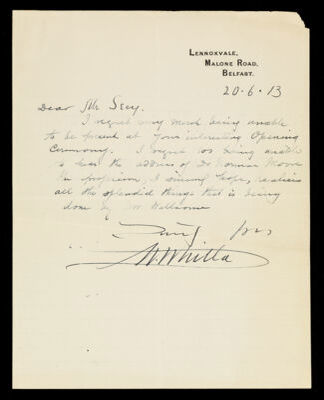 LENNOXVALE,
MALONE ROAD,
BELFAST.
20-6-13
Dear Mr Secy.
I regret very much being unable
to be present at your interesting Opening
Ceremony. I regret too being unable
to hear the address of Dr Norman Moore
the profession, I sincerely hope, realises
all the splendid things that is being
done by Mr Wellcome
yours
W. Whitla